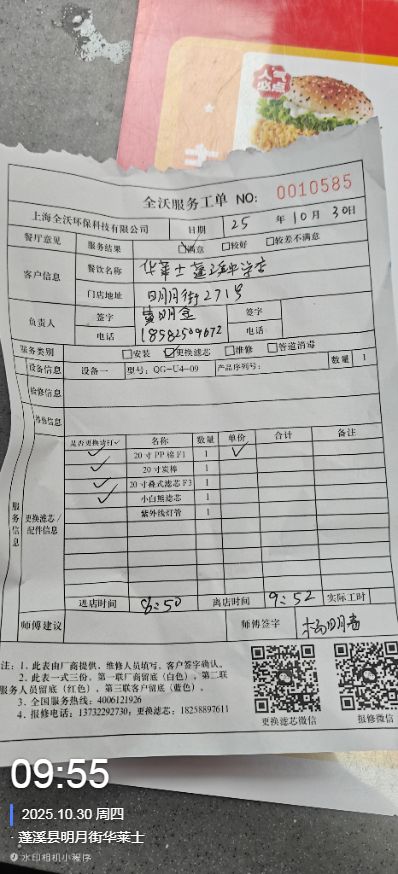 人气
必点
全沃服务工单 NO: 0010585
上海全沃环保科技有限公司 日期 25 年 10 月 30日
餐厅意见 服务结果 ☑满意 □较好 □较差不满意
客户信息 餐饮名称 华莱士蓬溪中学店
门店地址 明月街271号
负责人 签字 黄明金 签字
电话 18582509672 电话
服务类别 □安装 ☑更换滤芯 □维修 □管道消毒
设备信息 设备一 型号: QG-U4-09 产品序列号: 数量 1
检修信息
是否更换请打✓ 名称 数量 单价 合计 备注
✓ 20寸PP棉F1 1 ✓
✓ 20寸炭棒 1
✓ 20寸叠式滤芯F3 1
✓ 小白熊滤芯 1
紫外线灯管 1
服务信息 更换滤芯/配件信息
进店时间 8:50 离店时间 9:52 实际工时
师傅建议 师傅签字
注: 1. 此表由厂商提供, 维修人员填写, 客户签字确认。
2. 此表一式三份, 第一联厂商留底(白色), 第二联
服务人员留底(红色), 第三联客户留底(蓝色)。
3. 全国服务热线: 4006121926
4. 报修电话: 13732292730; 更换滤芯: 18258897611
更换滤芯微信 报修微信
09:55
2025.10.30 周四
蓬溪县明月街华莱士
水印相机小程序